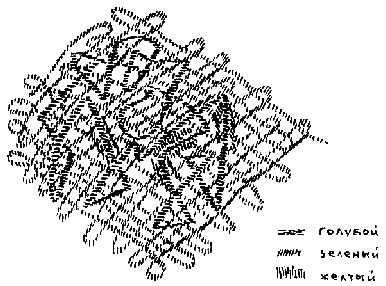 голубой
зеленый
желтый